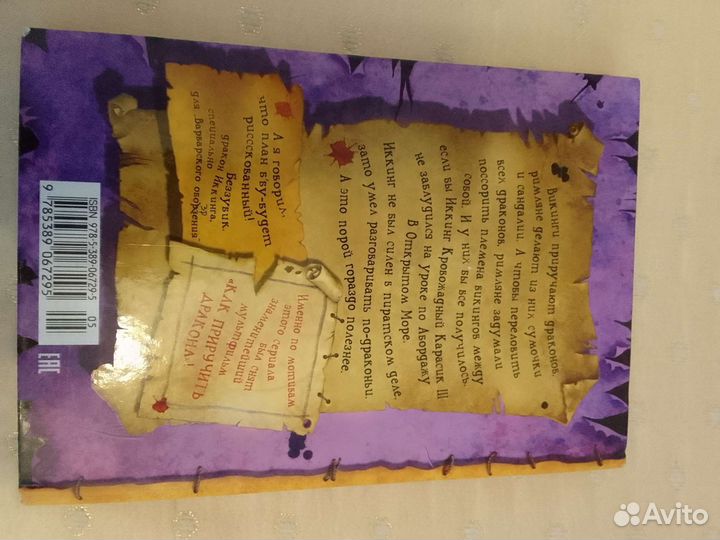 Викинги приручают драконов,
римляне делают из них сумочки
и сандалии. А чтобы переловить
всех драконов, римляне задумали
поссорить племена викингов между
собой. И у них бы все получилось,
если бы Иккинг Кровожадный Карасик III
не заблудился на уроке по Абордажу
в Открытом Море.
Иккинг не был силен в пиратском деле,
зато умел разговаривать по-драконьи.
А это порой гораздо полезнее.
А я говорил,
что план б'ву-будет
рисссскованный!
Беззубик
дракон Иккинга,
специально
для „Варварского
Именно по мотивам
этого сериала
был снят
знаменитейший
мультфильм
«КАК ПРИРУЧИТЬ
ДРАКОНА»!
ISBN 978-5-389-06729-5
05
9 785389 067295
EAC
Avito